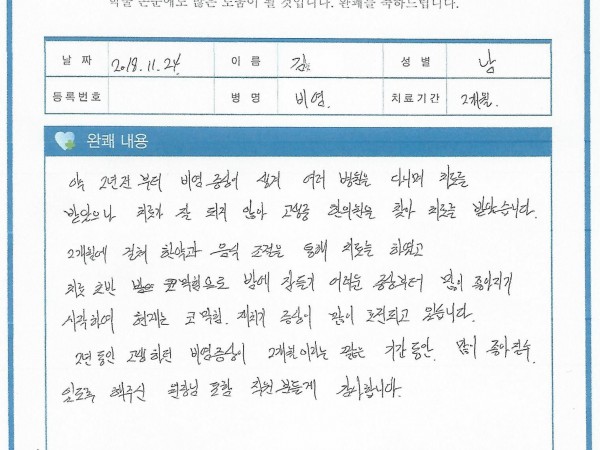 학술 논문에도 많은 도움이 될 것입니다. 완쾌를 축하드립니다.
날 짜 2018.11.24 이 름 김 성 별 남
등록번호 병 명 비염 치료기간 2개월
완쾌 내용
약 2년전부터 비염 증상이 생겨 여러 병원을 다니며 치료를
받았으나 치료가 잘 되지 않아 고생중 한의원을 찾아 치료를 받았습니다.
2개월에 걸쳐 한약과 음식 조절을 통해 치료를 하였고
치료 초반 코막힘으로 밤에 잠들기 어려운 증상부터 많이 좋아지기
시작하여 현재는 코막힘, 재채기 증상이 많이 호전되고 있습니다.
2년 동안 고생하던 비염증상이 2개월이라는 짧은 기간동안 많이 좋아질수
있도록 해주신 원장님 포함 직원분들께 감사합니다.